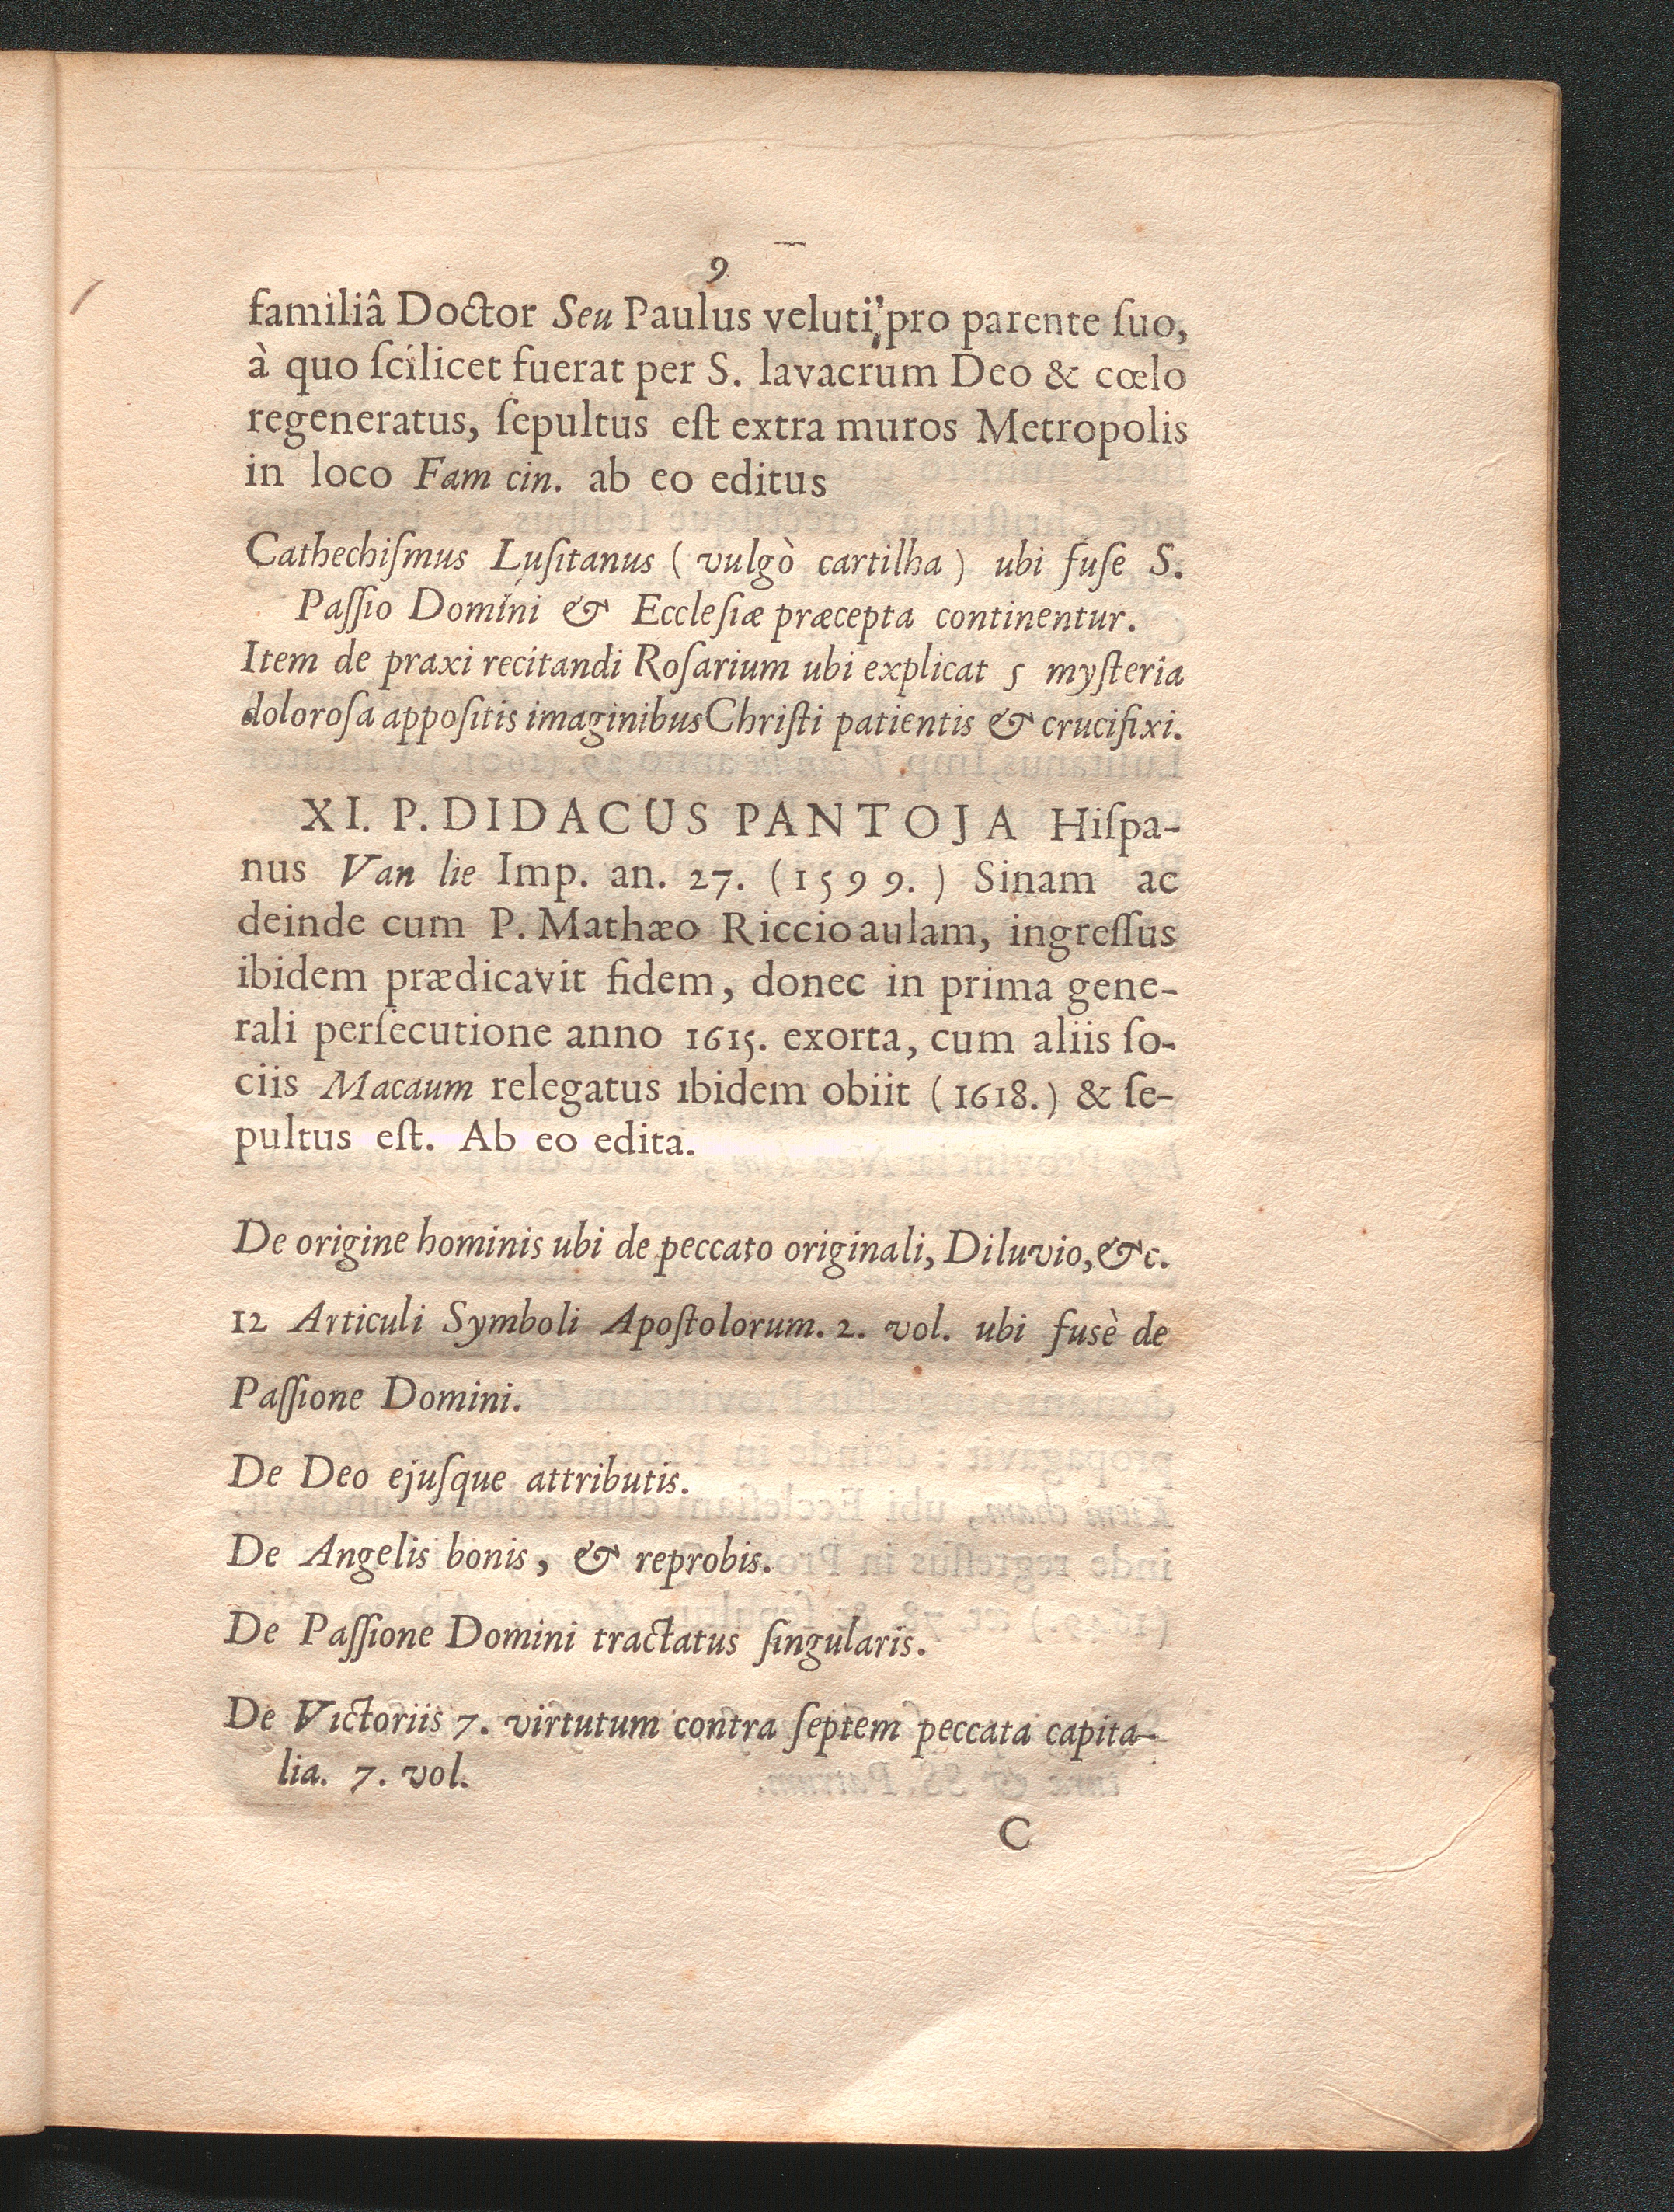 9
familiâ Doctor Seu Paulus veluti pro parente ſuo,
à quo ſcilicet fuerat per S. lavacrum Deo & cœlo
regeneratus, ſepultus eſt extra muros Metropolis
in loco Fam cin. ab eo editus
Cathechiſmus Luſitanus (vulgò cartilha) ubi fuſe S.
Paſſio Domini & Eccleſiæ præcepta continentur.
Item de praxi recitandi Roſarium ubi explicat 5 myſteria
doloroſa appoſitis imaginibus Chriſti patientis & crucifixi.
XI. P. DIDACUS PANTOJA Hiſpa-
nus Van lie Imp. an. 27. (1599.) Sinam ac
deinde cum P. Mathæo Riccio aulam, ingreſſus
ibidem prædicavit fidem, donec in prima gene-
rali perſecutione anno 1615. exorta, cum aliis ſo-
ciis Macaum relegatus ibidem obiit (1618.) & ſe-
pultus eſt. Ab eo edita.
De origine hominis ubi de peccato originali, Diluvio, &c.
12 Articuli Symboli Apoſtolorum. 2. vol. ubi fusè de
Paſſione Domini.
De Deo ejuſque attributis.
De Angelis bonis, & reprobis.
De Paſſione Domini tractatus ſingularis.
De Victoriis 7. virtutum contra ſeptem peccata capita-
lia. 7. vol.
C